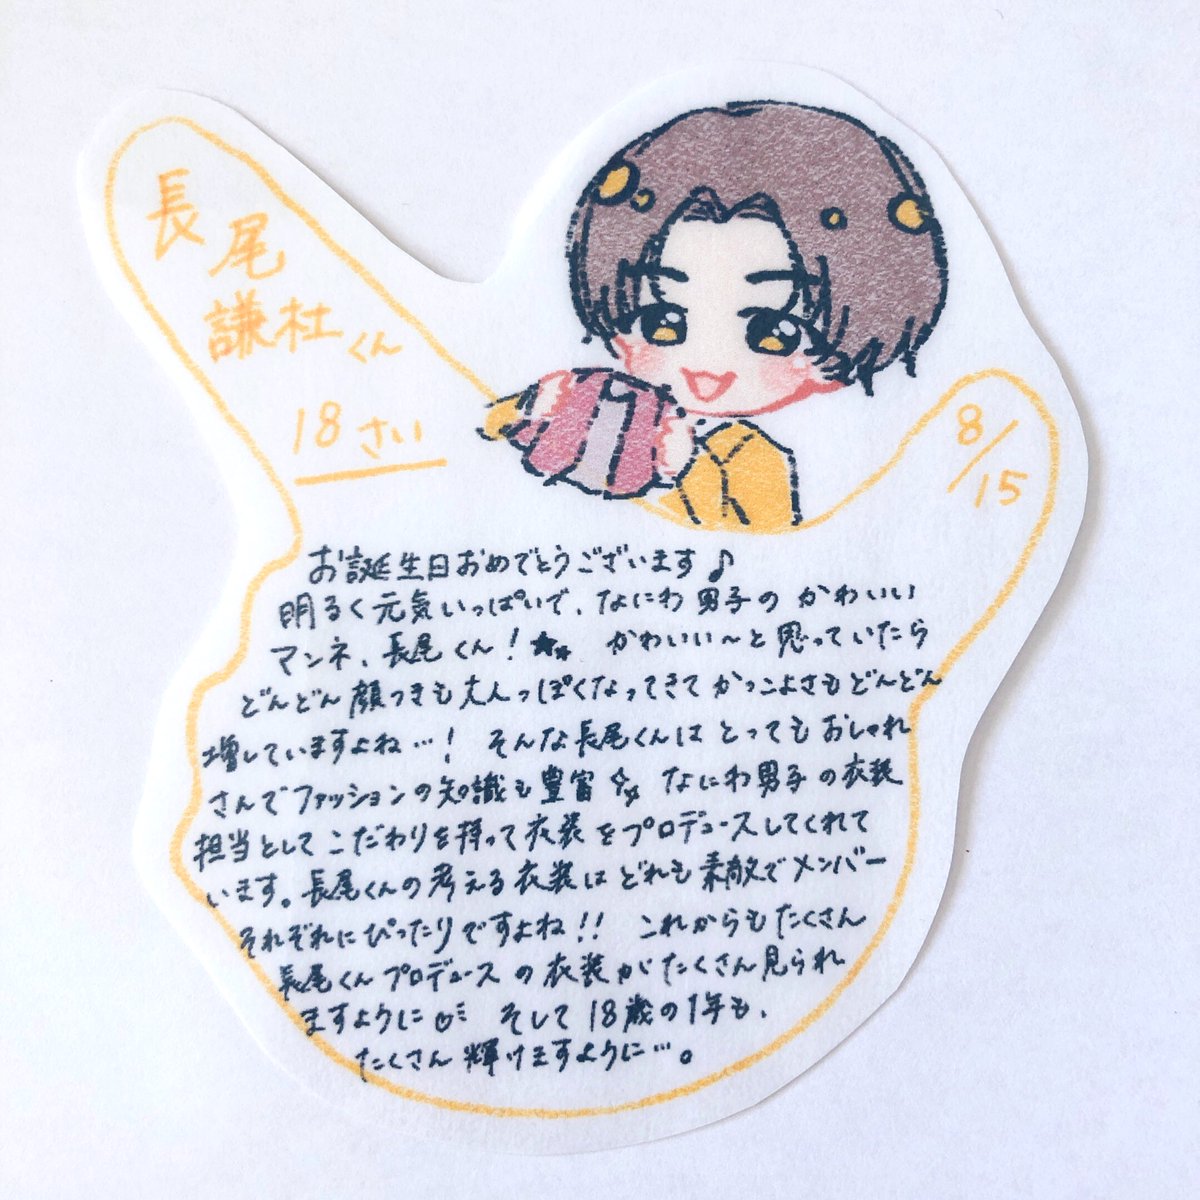 長尾
謙杜くん
18さい
8/15
お誕生日おめでとうございます♪
明るく元気いっぱいで、なにわ男子のかわいい
マンネ、長尾くん!★☆ かわいい〜と思っていたら
どんどん顔つきも大人っぽくなってきてかっこよさもどんどん
増していますよね…! そんな長尾くんはとってもおしゃれ
さんでファッションの知識も豊富✨ なにわ男子の衣装
担当としてこだわりを持って衣装をプロデュースしてくれて
います。長尾くんの考える衣装はどれも素敵でメンバー
それぞれにぴったりですよね!! これからもたくさん
長尾くんプロデュースの衣装がたくさん見られ
ますように そして18歳の1年も、
たくさん輝けますように…。